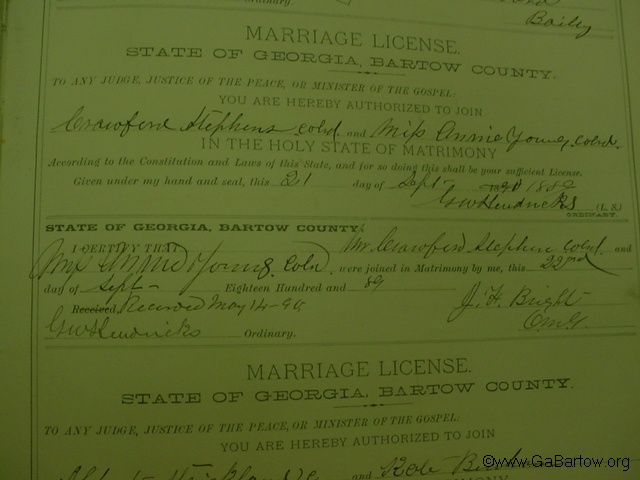 Bailey
MARRIAGE LICENSE.
STATE OF GEORGIA, BARTOW COUNTY.
TO ANY JUDGE, JUSTICE OF THE PEACE, OR MINISTER OF THE GOSPEL:
YOU ARE HEREBY AUTHORIZED TO JOIN
Crawford Stephens cold. and Miss Annie Young, cold.
IN THE HOLY STATE OF MATRIMONY
According to the Constitution and Laws of this State, and for so doing this shall be your sufficient License.
Given under my hand and seal, this 21 day of Sept- 1889
GW Hendricks (L.S.)
ORDINARY.
STATE OF GEORGIA, BARTOW COUNTY.
I CERTIFY THAT Mr. Crawford Stephen cold. and
Miss Annie Young. Cold. were joined in Matrimony by me, this 22nd
day of Sept- Eighteen Hundred and 89
Received Recorded May 14-90 J. H. Bright
GW Hendricks Ordinary. O.M.G.
MARRIAGE LICENSE.
STATE OF GEORGIA, BARTOW COUNTY.
TO ANY JUDGE, JUSTICE OF THE PEACE, OR MINISTER OF THE GOSPEL:
YOU ARE HEREBY AUTHORIZED TO JOIN
and
©www.GaBartow.org